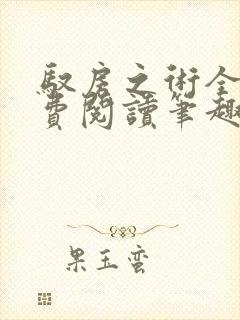 馭房之術全
費閱讀筆趣
果玉蛮